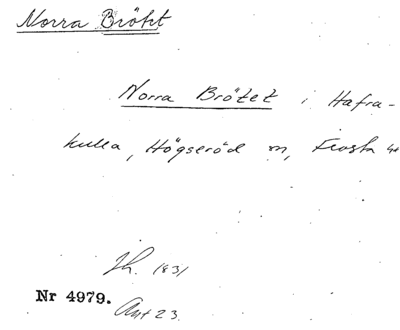 Norra Brötet
Norra Brötet i Hafra-
kulla, Högseröd sn, Frosta hd
Jh. 1831
Nr 4979.
Ant 23.